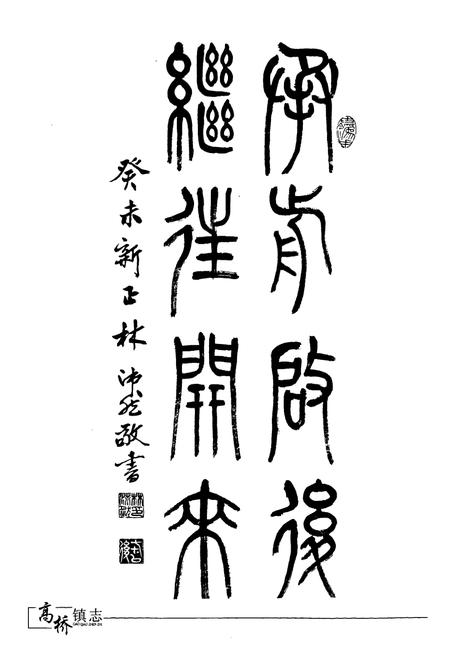 承前啟後
繼往開來
癸未新正林沛然敬書
高桥镇志